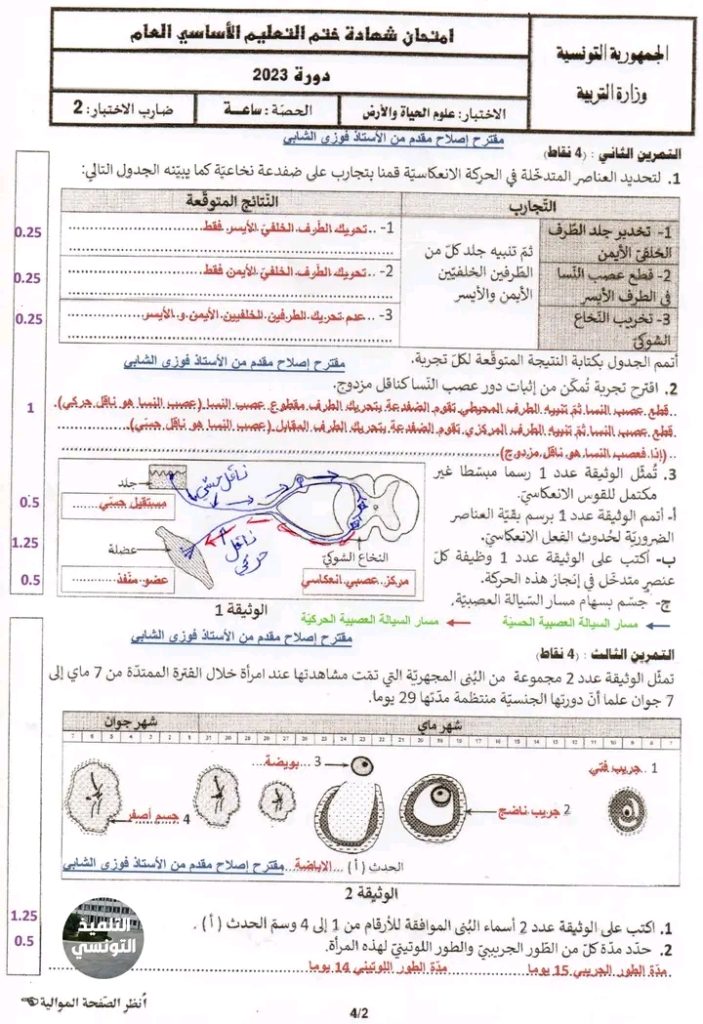 الجمهورية التونسية
وزارة التربية
امتحان شهادة ختم التعليم الأساسي العام
دورة 2023
الاختبار: علوم الحياة والأرض
الحصّة: ساعــة
ضارب الاختبار: 2
مقترح إصلاح مقدم من الأستاذ فوزي الشابي
التمرين الثاني : (4 نقاط)
1. لتحديد العناصر المتدخّلة في الحركة الانعكاسيّة قمنا بتجارب على ضفدعة نخاعيّة كما يبيّنه الجدول التالي:
التّجارب
النّتائج المتوقّعة
1- تخدير جلد الطّرف الخلفيّ الأيمن
2- قطع عصب النّسا في الطرف الأيسر
3- تخريب النّخاع الشوكيّ
ثمّ تنبيه جلد كلّ من
الطّرفين الخلفيّين
الأيمن والأيسر
1- تحريك الطّرف الخلفيّ الأيسر فقط
2- تحريك الطّرف الخلفيّ الأيمن فقط
3- عدم تحريك الطرفين الخلفيين الأيمن و الأيسر
0.25
0.25
0.25
أتمم الجدول بكتابة النتيجة المتوقّعة لكلّ تجربة.
مقترح إصلاح مقدم من الأستاذ فوزي الشابي
2. اقترح تجربة تُمكّن من إثبات دور عصب النّسا كناقل مزدوج.
قطع عصب النسا ثمّ تنبيه الطرف المحيطي تقوم الضفدعة بتحريك الطرف مقطوع عصب النسا (عصب النسا هو ناقل حركي).
قطع عصب النسا ثمّ تنبيه الطرف المركزي تقوم الضفدعة بتحريك الطرف المقابل (عصب النسا هو ناقل حسّي).
(إذا فعصب النسا هو ناقل مزدوج)
1
3. تُمثّل الوثيقة عدد 1 رسما مبسّطا غير
مكتمل للقوس الانعكاسيّ.
أ- أتمم الوثيقة عدد 1 برسم بقيّة العناصر
الضروريّة لحُدوث الفعل الانعكاسيّ.
ب- أكتب على الوثيقة عدد 1 وظيفة كلّ
عنصر متدخّل في إنجاز هذه الحركة.
ج- جسّم بسهام مسار السّيالة العصبيّة.
0.5
1.25
0.5
جلد
ناقل حسّي
مستقبل حسّي
عضلة
ناقل حركي
النخاع الشوكيّ
عضو منفّذ
مركز عصبي انعكاسي
الوثيقة 1
مسار السيالة العصبية الحسيّة
مسار السيالة العصبية الحركيّة
مقترح إصلاح مقدم من الأستاذ فوزي الشابي
التمرين الثالث : (4 نقاط)
تمثّل الوثيقة عدد 2 مجموعة من البُنى المجهريّة التي تمّت مشاهدتها عند امرأة خلال الفترة الممتدّة من 7 ماي إلى
7 جوان علما أنّ دورتها الجنسيّة منتظمة مدّتها 29 يوما.
شهر ماي
شهر جوان
1 جريب فتي
2 جريب ناضج
3 بويضة
4 جسم أصفر
الحدث (أ) الاباضة
مقترح إصلاح مقدم من الأستاذ فوزي الشابي
الوثيقة 2
1. اكتب على الوثيقة عدد 2 أسماء البُنى الموافقة للأرقام من 1 إلى 4 وسمّ الحدث (أ).
2. حدّد مدّة كلّ من الطّور الجريبيّ والطور اللوتينيّ لهذه المرأة.
مدّة الطور الجريبي 15 يوما
مدّة الطور اللوتيني 14 يوما
1.25
0.5
التلميذ
التونسي
أنظر الصّفحة الموالية
4/2